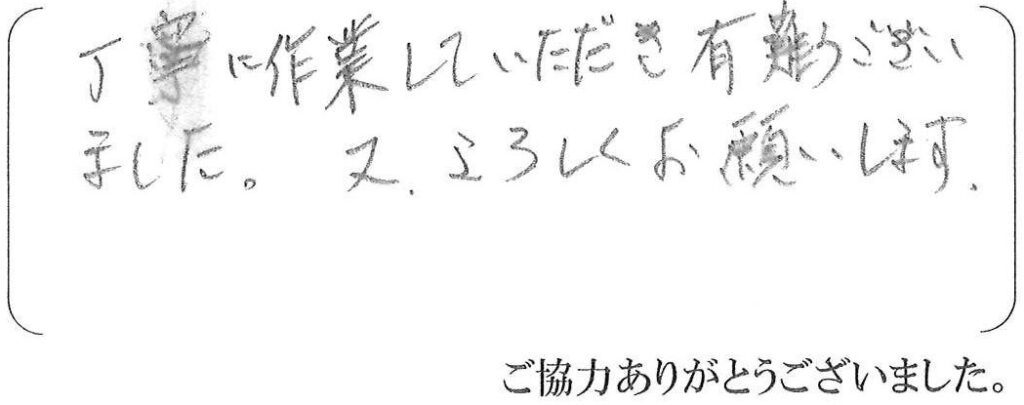 丁寧に作業していただき有難うござい
ました。又、よろしくお願いします、
ご協力ありがとうございました。